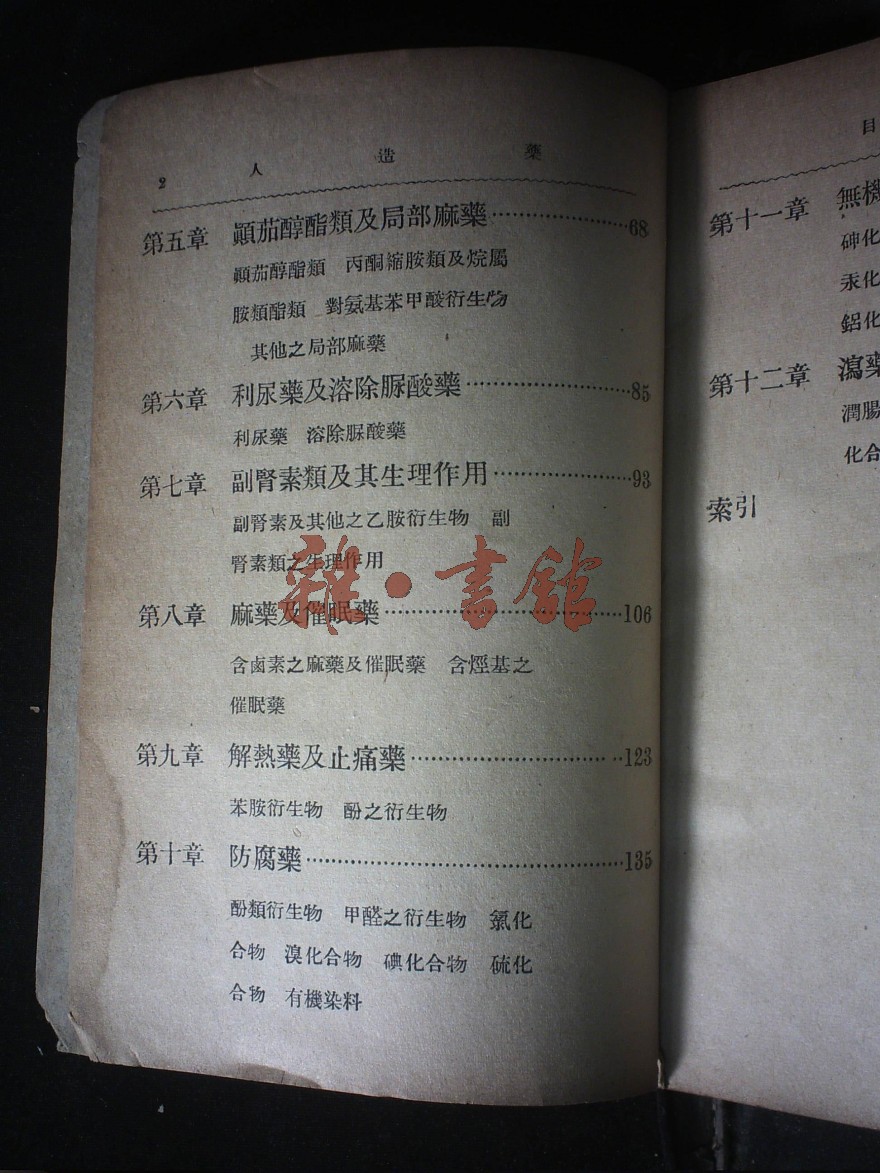 2 人造藥
第五章 顚茄醇酯類及局部麻藥 68
顚茄醇酯類 丙酮縮胺類及烷屬
胺類酯類 對氨基苯甲酸衍生物
其他之局部麻藥
第六章 利尿藥及溶除脲酸藥 85
利尿藥 溶除脲酸藥
第七章 副腎素類及其生理作用 93
副腎素及其他之乙胺衍生物 副
腎素類之生理作用
第八章 麻藥及催眠藥 106
含鹵素之麻藥及催眠藥 含烴基之
催眠藥
第九章 解熱藥及止痛藥 123
苯胺衍生物 酚之衍生物
第十章 防腐藥 135
酚類衍生物 甲醛之衍生物 氯化
合物 溴化合物 碘化合物 硫化
合物 有機染料
雜·書館
目
第十一章 無機
砷化
汞化
鋁化
第十二章 瀉藥
潤腸
化合
索引